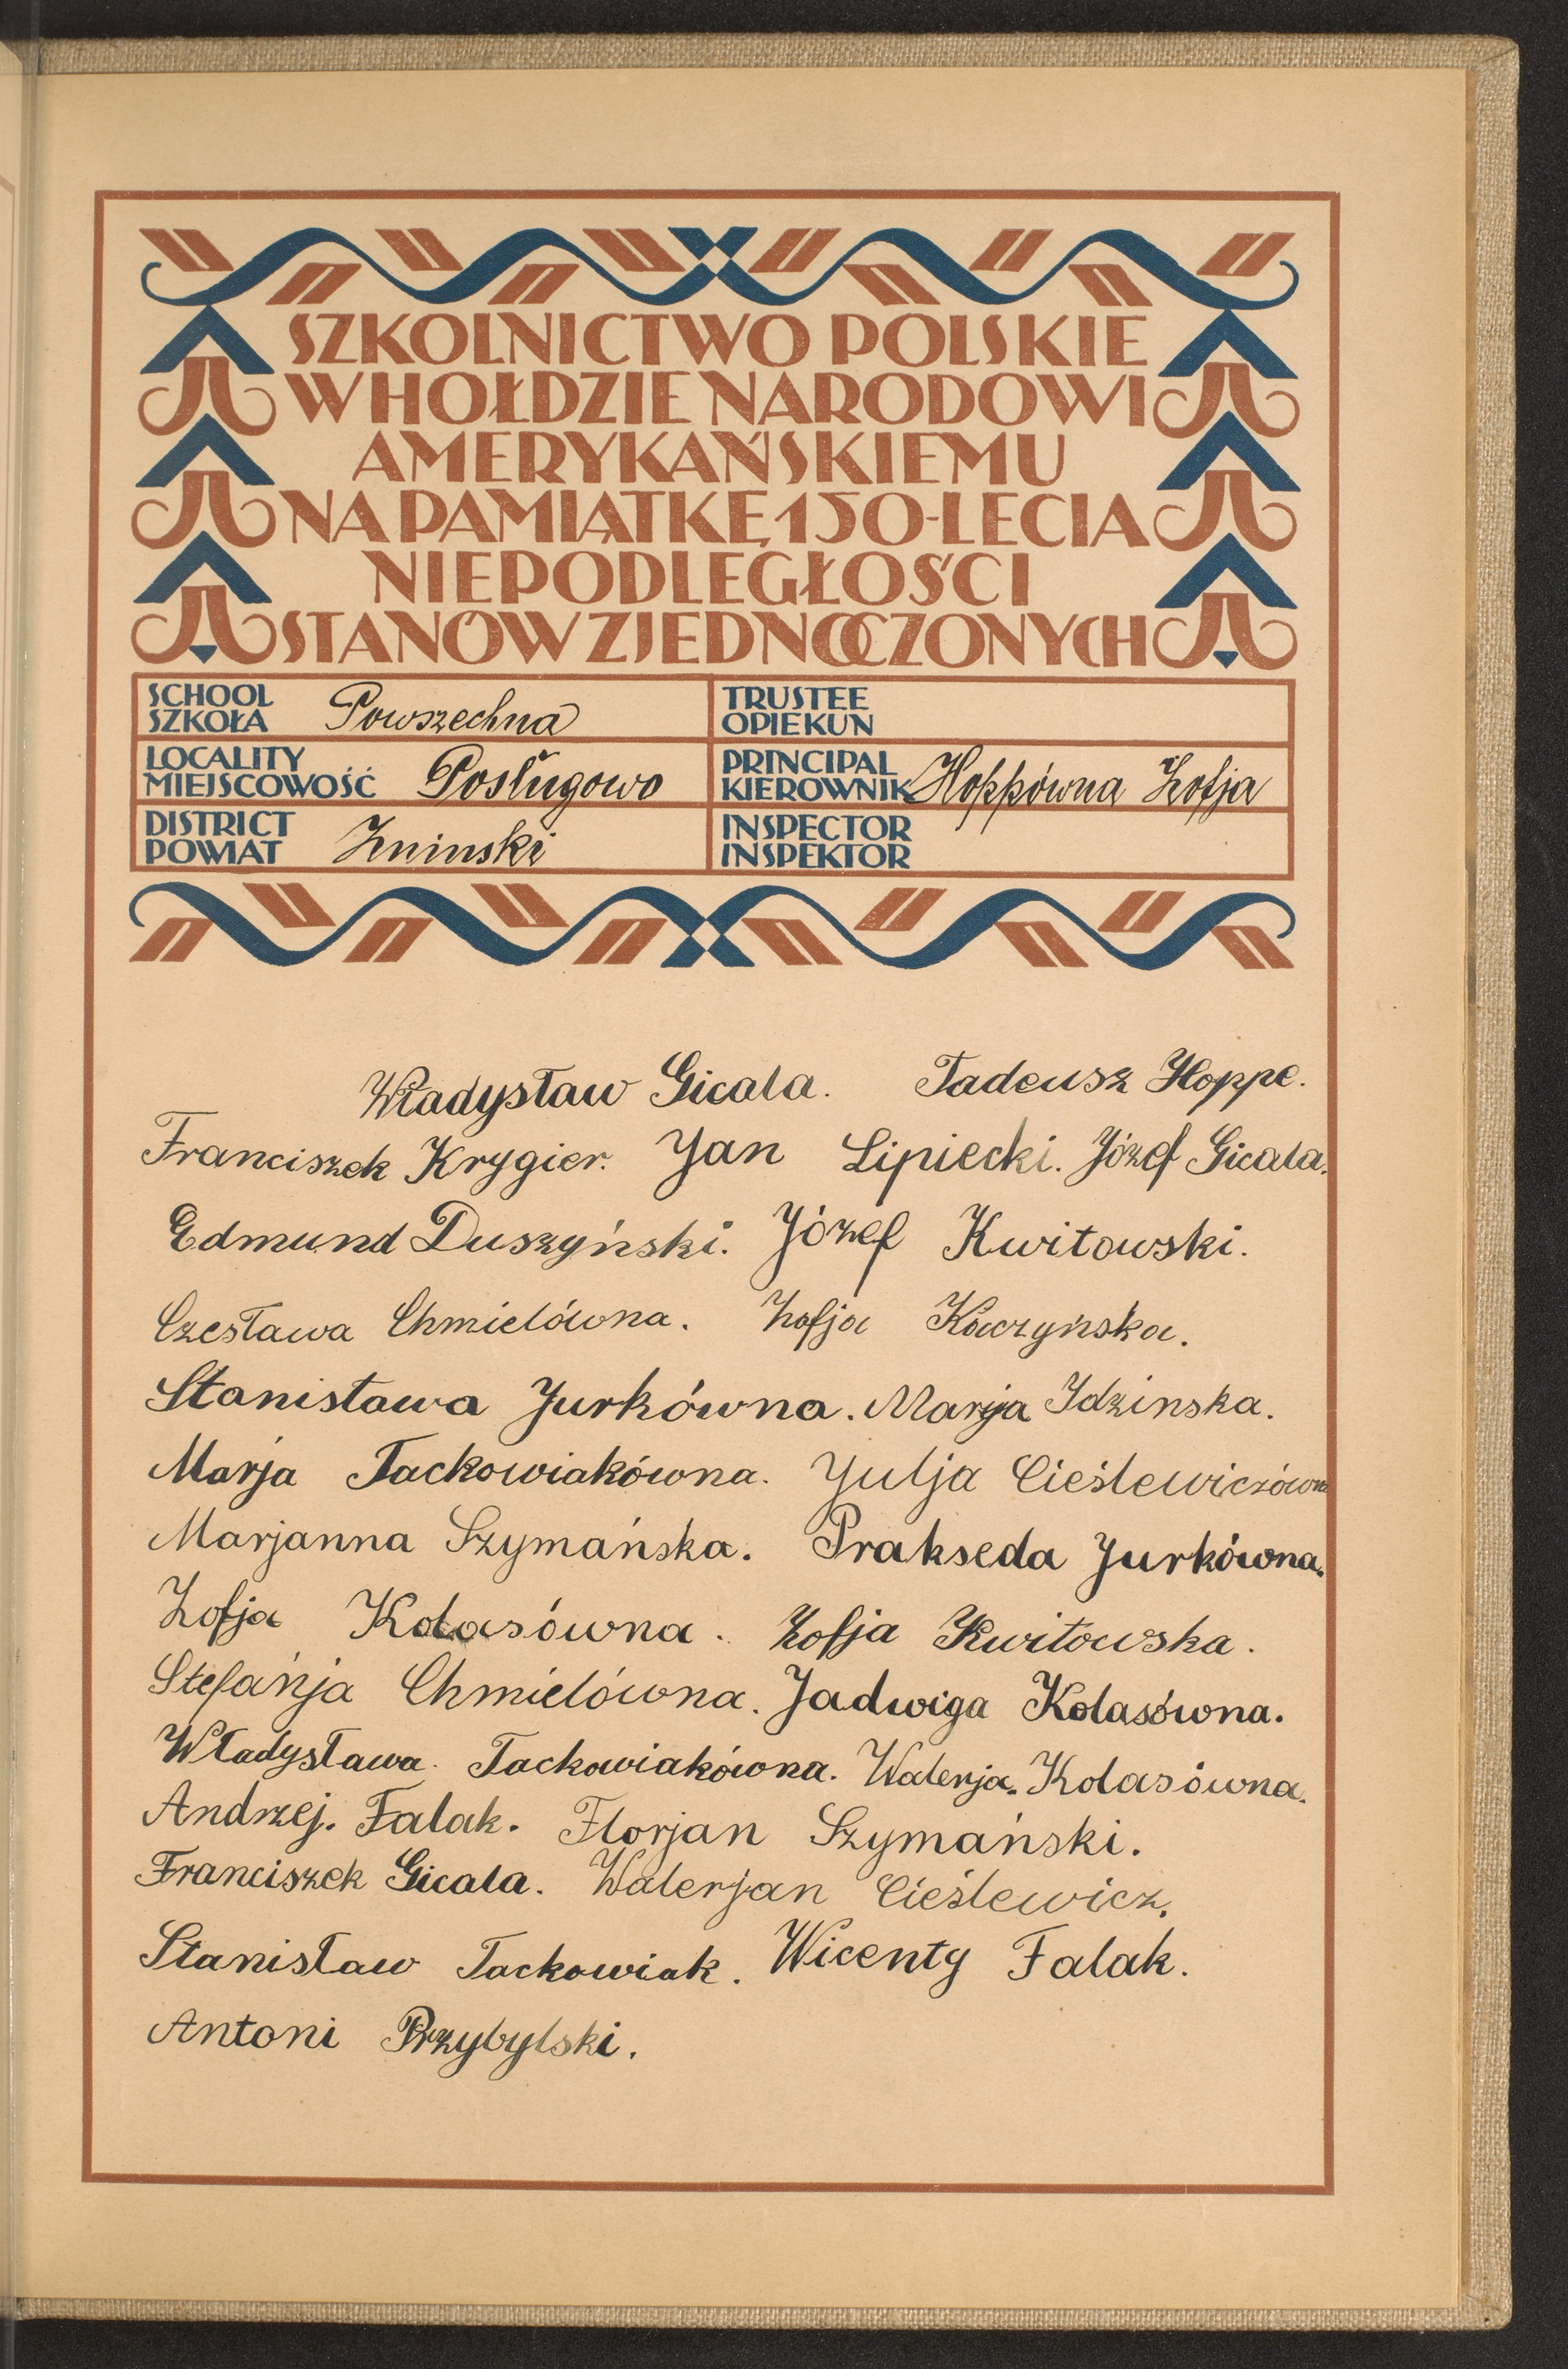 SZKOLNICTWO POLSKIE
W HOŁDZIE NARODOWI
AMERYKAŃSKIEMU
NA PAMIĄTKĘ 150-LECIA
NIEPODLEGŁOŚCI
STANÓW ZJEDNOCZONYCH
SCHOOL
SZKOŁA Powszechna
TRUSTEE
OPIEKUN
LOCALITY
MIEJSCOWOŚĆ Posługowo
PRINCIPAL
KIEROWNIK Hoppówna Zofja
DISTRICT
POWIAT Zninski
INSPECTOR
INSPEKTOR
Władysław Gicala. Tadeusz Hoppe.
Franciszek Krygier. Jan Lipiecki. Józef Gicala.
Edmund Duszyński. Józef Kwitowski.
Czesława Chmielówna. Zofja Kaczyńska.
Stanisława Jurkówna. Marja Idzinska.
Marja Tackowiakówna. Julja Cieślewiczówna
Marjanna Szymańska. Prakseda Jurkówna.
Zofja Kolasówna. Zofja Kwitowska.
Stefańja Chmielówna. Jadwiga Kolasówna.
Władysława. Tackowiakówna. Walerja. Kolasówna.
Andrzej. Falak. Florjan Szymański.
Franciszek Gicala. Walerjan Cieślewicz.
Stanisław Tackowiak. Wicenty Falak.
Antoni Przybylski.